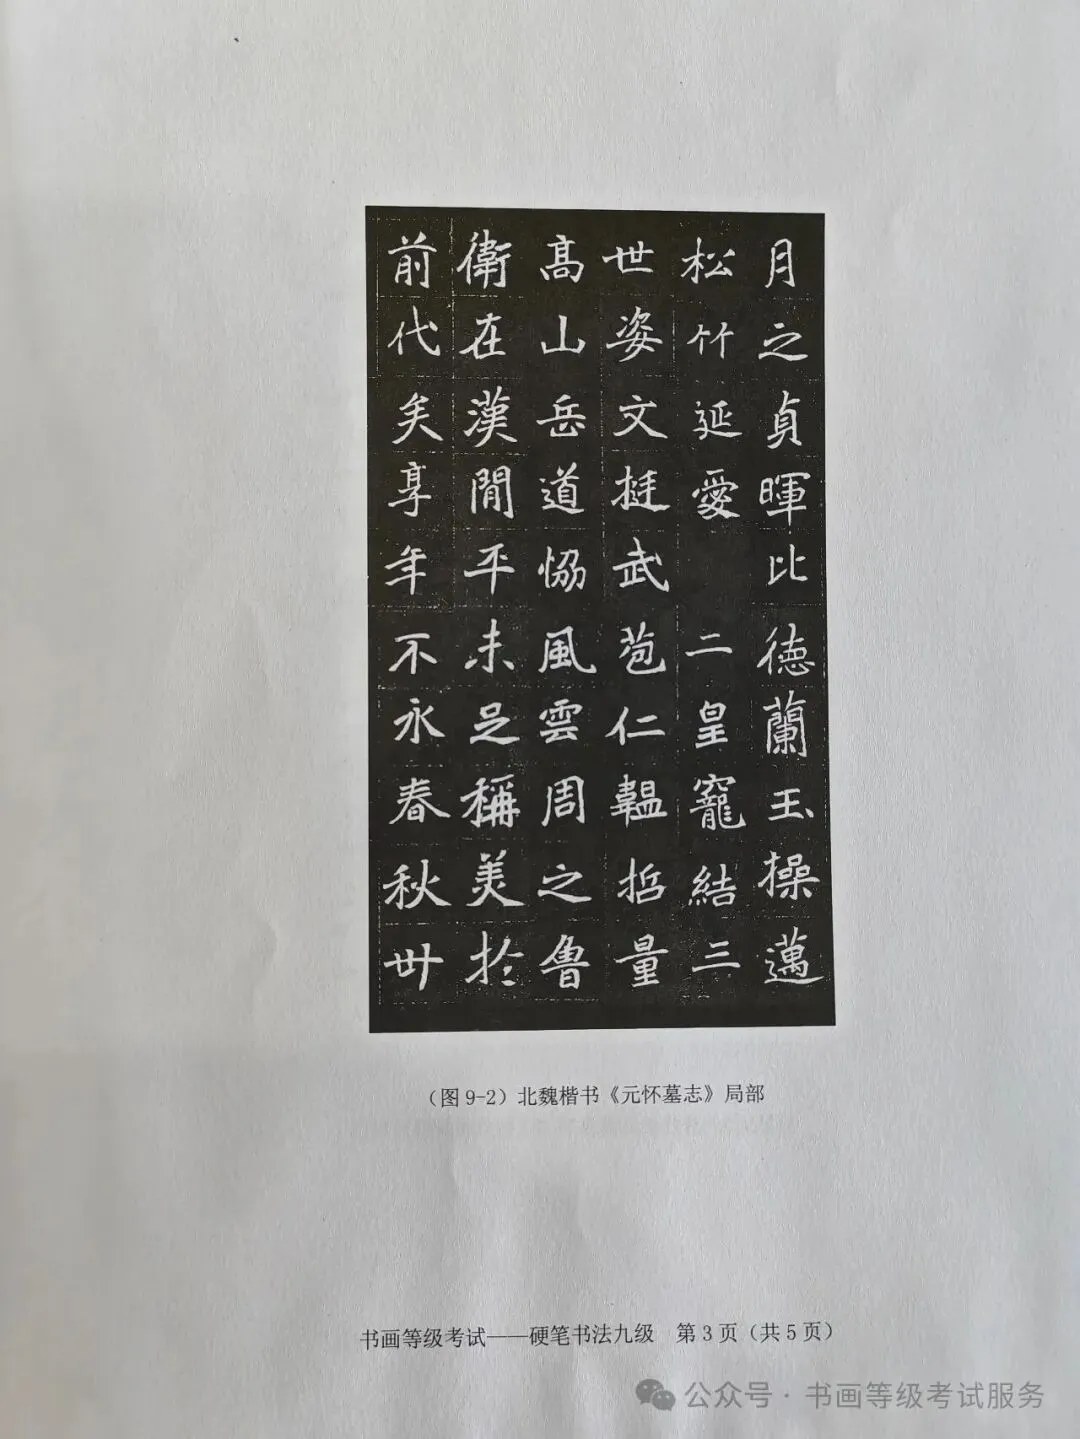 月之貞暉比德蘭玉操邁
松竹延愛 二皇寵結三
世姿文挺武苞仁韞哲量
高山岳道恊風雲周之魯
衛在漢間平未足稱美於
前代矣享年不永春秋卅
（图 9-2）北魏楷书《元怀墓志》局部
书画等级考试——硬笔书法九级 第 3 页（共 5 页）
公众号 · 书画等级考试服务